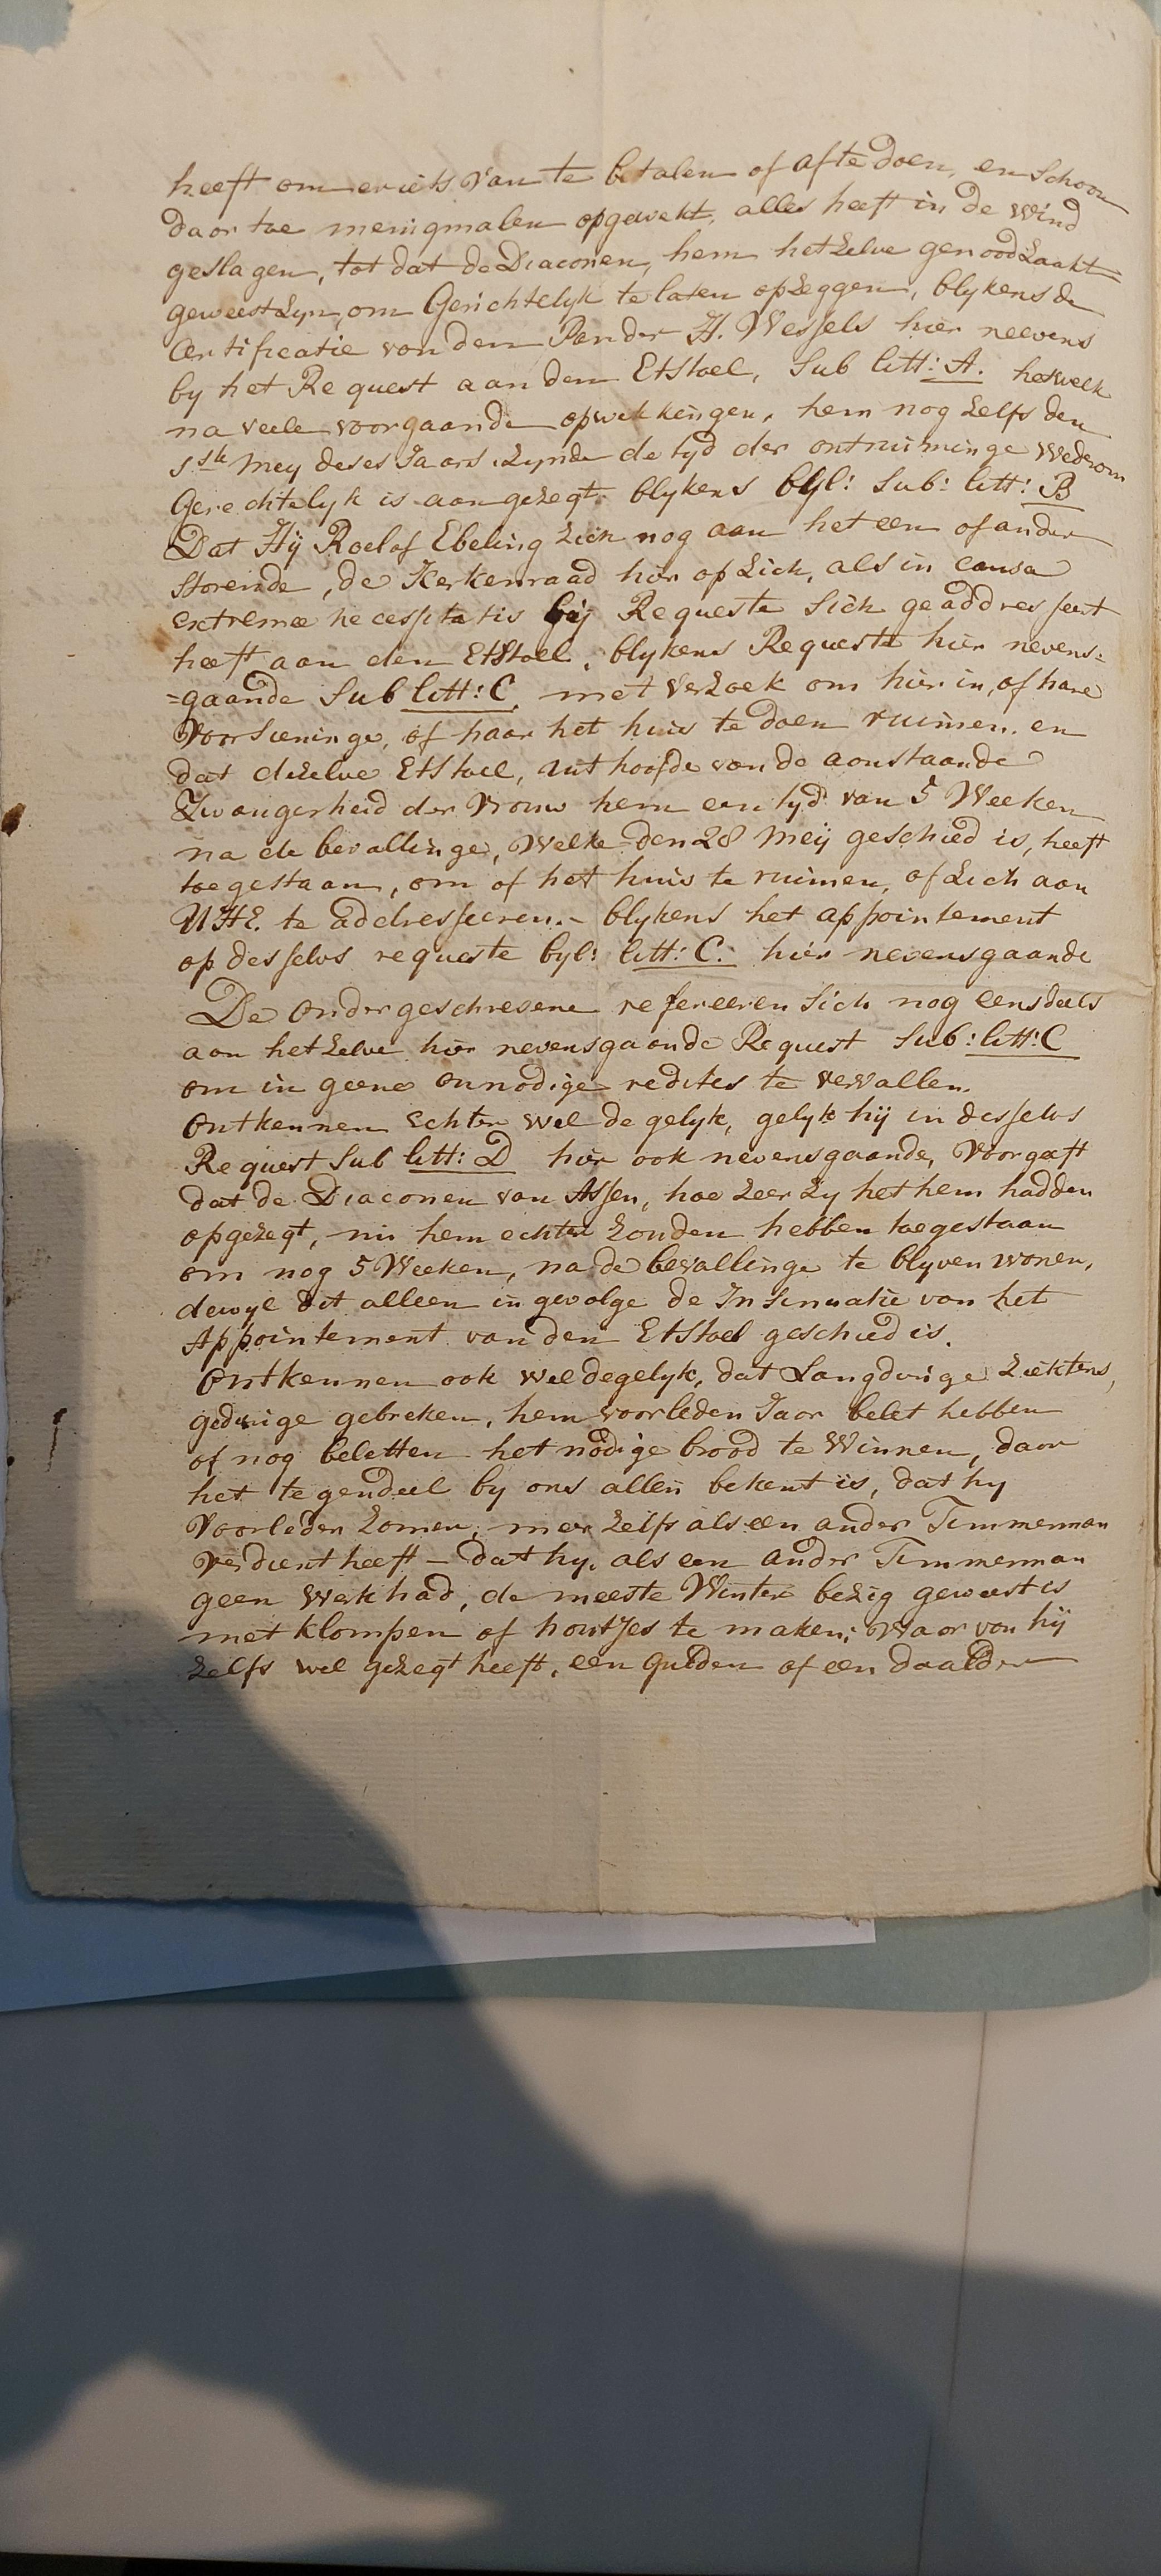 heeft om er iets van te betalen of afte doen, en schoon
daar toe menigmalen opgewekt, alles heeft in de wind
geslagen, tot dat de Diaconen, hem het Zelve genoodzaakt
geweest Zyn, om Gerichtelyk te laten opzeggen, blykens de
Certificatie van dem Pander H. Wessels hier neevens
by het Request aan dem Etstoel, Sub litt: A. hetwelk
na veele voorgaande opwekkingen, hem nog Zelfs den
1ste Mey deses Jaars Zynde de tyd der ontruiminge wederom
Gerechtelyk is aangezegt blykens Byl: Sub: litt: B
Dat Hij Roelof Ebeling Zich nog aan het een of ander
storende, de Kerkenraad hier op Zich, als in causa
extremæ necessitatis bij Requeste Sich geaddresseert
heeft aan den Etstoel, blykens Requeste hier nevens=
=gaande Sub litt: C, met verzoek om hier in, of hare
voorsieninge, of haar het huis te doen ruimen. en
dat dezelve Etstoel, uut hoofde van de aanstaande
Zwangerheid der Vrouw hem een tyd van 5 Weeken
na de bevallinge, Welke den 28 Meij geschied is, heeft
toegestaan, om of het huis te ruimen, of Zich aan
UHE. te addresseeren.- blykens het appointement
op desselvs requeste byl: litt: C. hier nevensgaande
De Ondergeschrevene refereeren Sich nog eensdeels
aan het Zelve hier nevensgaande Request Sub: litt: C
om in geene onnodige redites te vervallen.
Ontkennen echter wel degelyk, gelyk hij in desselvs
Request Sub litt: D hier ook nevensgaande, voorgeeft
dat de Diaconen van Assen, hoe Zeer Zy het hem hadden
opgezegt, nu hem echter Zouden hebben toegestaan
om nog 5 Weeken, na de bevallinge te blyven wonen,
dewyl dit alleen in gevolge de Insinuatie van het
Appointement van den Etstoel geschied is.
Ontkennen ook wel degelyk, dat Langdurige Ziektens,
gedurige gebreken, hem voorleden Jaar belet hebben
of nog beletten het nodige brood te Winnen, daar
het tegendeel by ons allen bekent is, dat hy
voorleden Zomer, meer Zelfs als een ander Timmerman
verdient heeft - dat hy, als een ander Timmerman
geen werk had, de meeste Winter bezig geweest is
met klompen of houtjes te maken; Waar van hij
Zelfs wel gezegt heeft, een gulden of een daalder